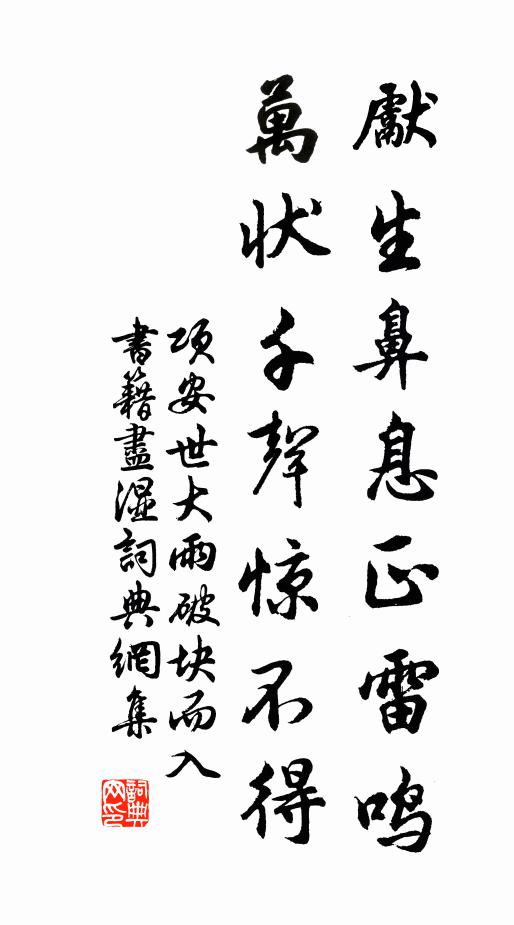 獻生鼻息正雷鸣
萬状千聲惊不得
项安世大雨破块而入
書籍盡濕詞典網集
詞典网印